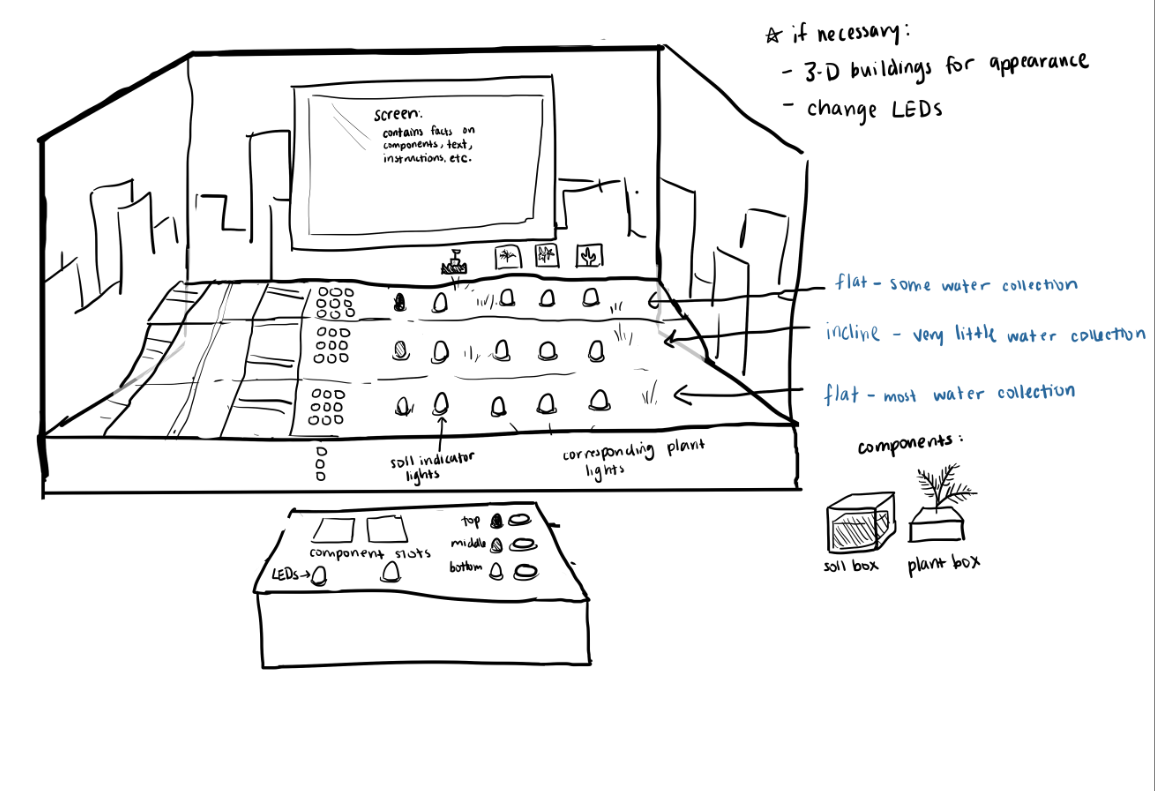 ☆ if necessary:
- 3-D buildings for appearance
- change LEDs
screen:
contains facts on
components, text,
instructions, etc.
flat - some water collection
incline - very little water collection
flat - most water collection
soil indicator
lights
corresponding plant
lights
components:
soil box
plant box
component slots
LEDs→
top
middle
bottom